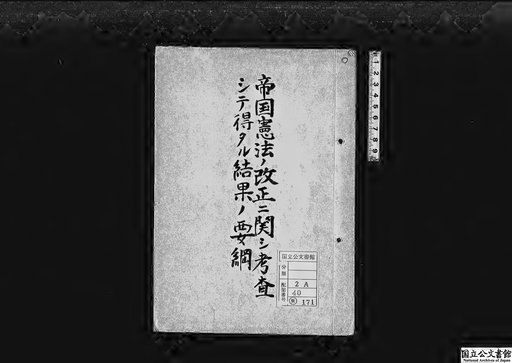 帝国憲法ノ改正ニ関シ考査
シテ得タル結果ノ要綱
国立公文書館
分類
配架番号
2 A
40
171
1 2 3 4 5 6 7 8 9
国立公文書館
National Archives of Japan